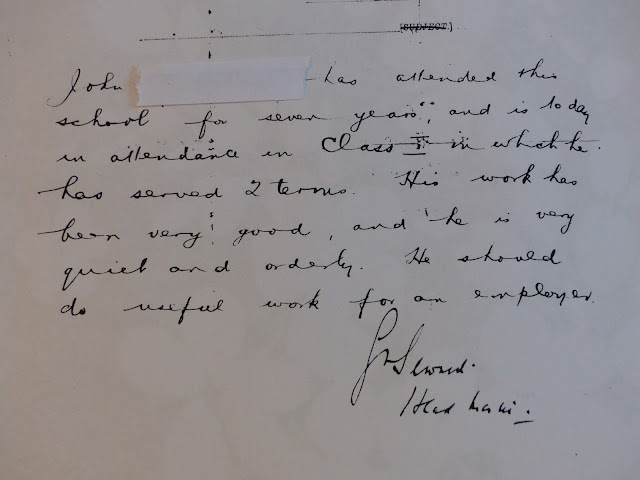 [SUBJECT]
John has attended this
school for seven years, and is to day
in attendance in Class I in which he
has served 2 terms. His work has
been very good, and he is very
quiet and orderly. He should
do useful work for an employer.
Head Master